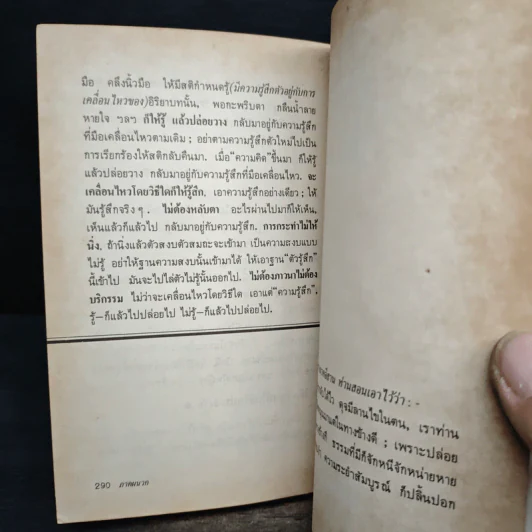 มือ คลึงนิ้วมือ ให้มีสติกำหนดรู้(มีความรู้สึกตัวอยู่กับการ
เคลื่อนไหวของ)อิริยาบทนั้น, พอกะพริบตา กลืนน้ำลาย
หายใจ ฯลฯ ก็ให้รู้ แล้วปล่อยวาง กลับมาอยู่กับความรู้สึก
ที่มือเคลื่อนไหวตามเดิม ; อย่าตามความรู้สึกตัวใหม่ไปเป็น
การเรียกร้องให้สติกลับคืนมา. เมื่อ“ความคิด”ขึ้นมา ก็ให้รู้
แล้วปล่อยวาง กลับมาอยู่กับความรู้สึกที่มือเคลื่อนไหว. จะ
เคลื่อนไหวโดยวิธีใดก็ให้รู้สึก. เอาความรู้สึกอย่างเดียว ; ให้
มันรู้สึกจริงๆ. ไม่ต้องหลับตา อะไรผ่านไปมาก็ให้เห็น,
เห็นแล้วก็แล้วไป กลับมาอยู่กับความรู้สึก. การกระทำไม่ให้
นิ่ง, ถ้านิ่งแล้วตัวสงบตัวสมถะจะเข้ามา เป็นความสงบแบบ
ไม่รู้ อย่าให้ฐานความสงบนั้นเข้ามาได้ ให้เอาฐาน“ตัวรู้สึก”
นี้เข้าไป มันจะไปไล่ตัวไม่รู้นั้นออกไป. ไม่ต้องภาวนาไม่ต้อง
บริกรรม ไม่ว่าจะเคลื่อนไหวโดยวิธีใด เอาแต่“ความรู้สึก”.
รู้–ก็แล้วไปปล่อยไป ไม่รู้–ก็แล้วไปปล่อยไป.
290 ภาคผนวก
ท่านสอนเอาไว้ว่า : -
ดุจมีลานไขในตน, เราท่าน
ในทางข้างดี ; เพราะปล่อย
ธรรมที่มีก็จักหนีจักหน่ายหาย
ความระยำสัมบูรณ์ ก็ปลิ้นปอก